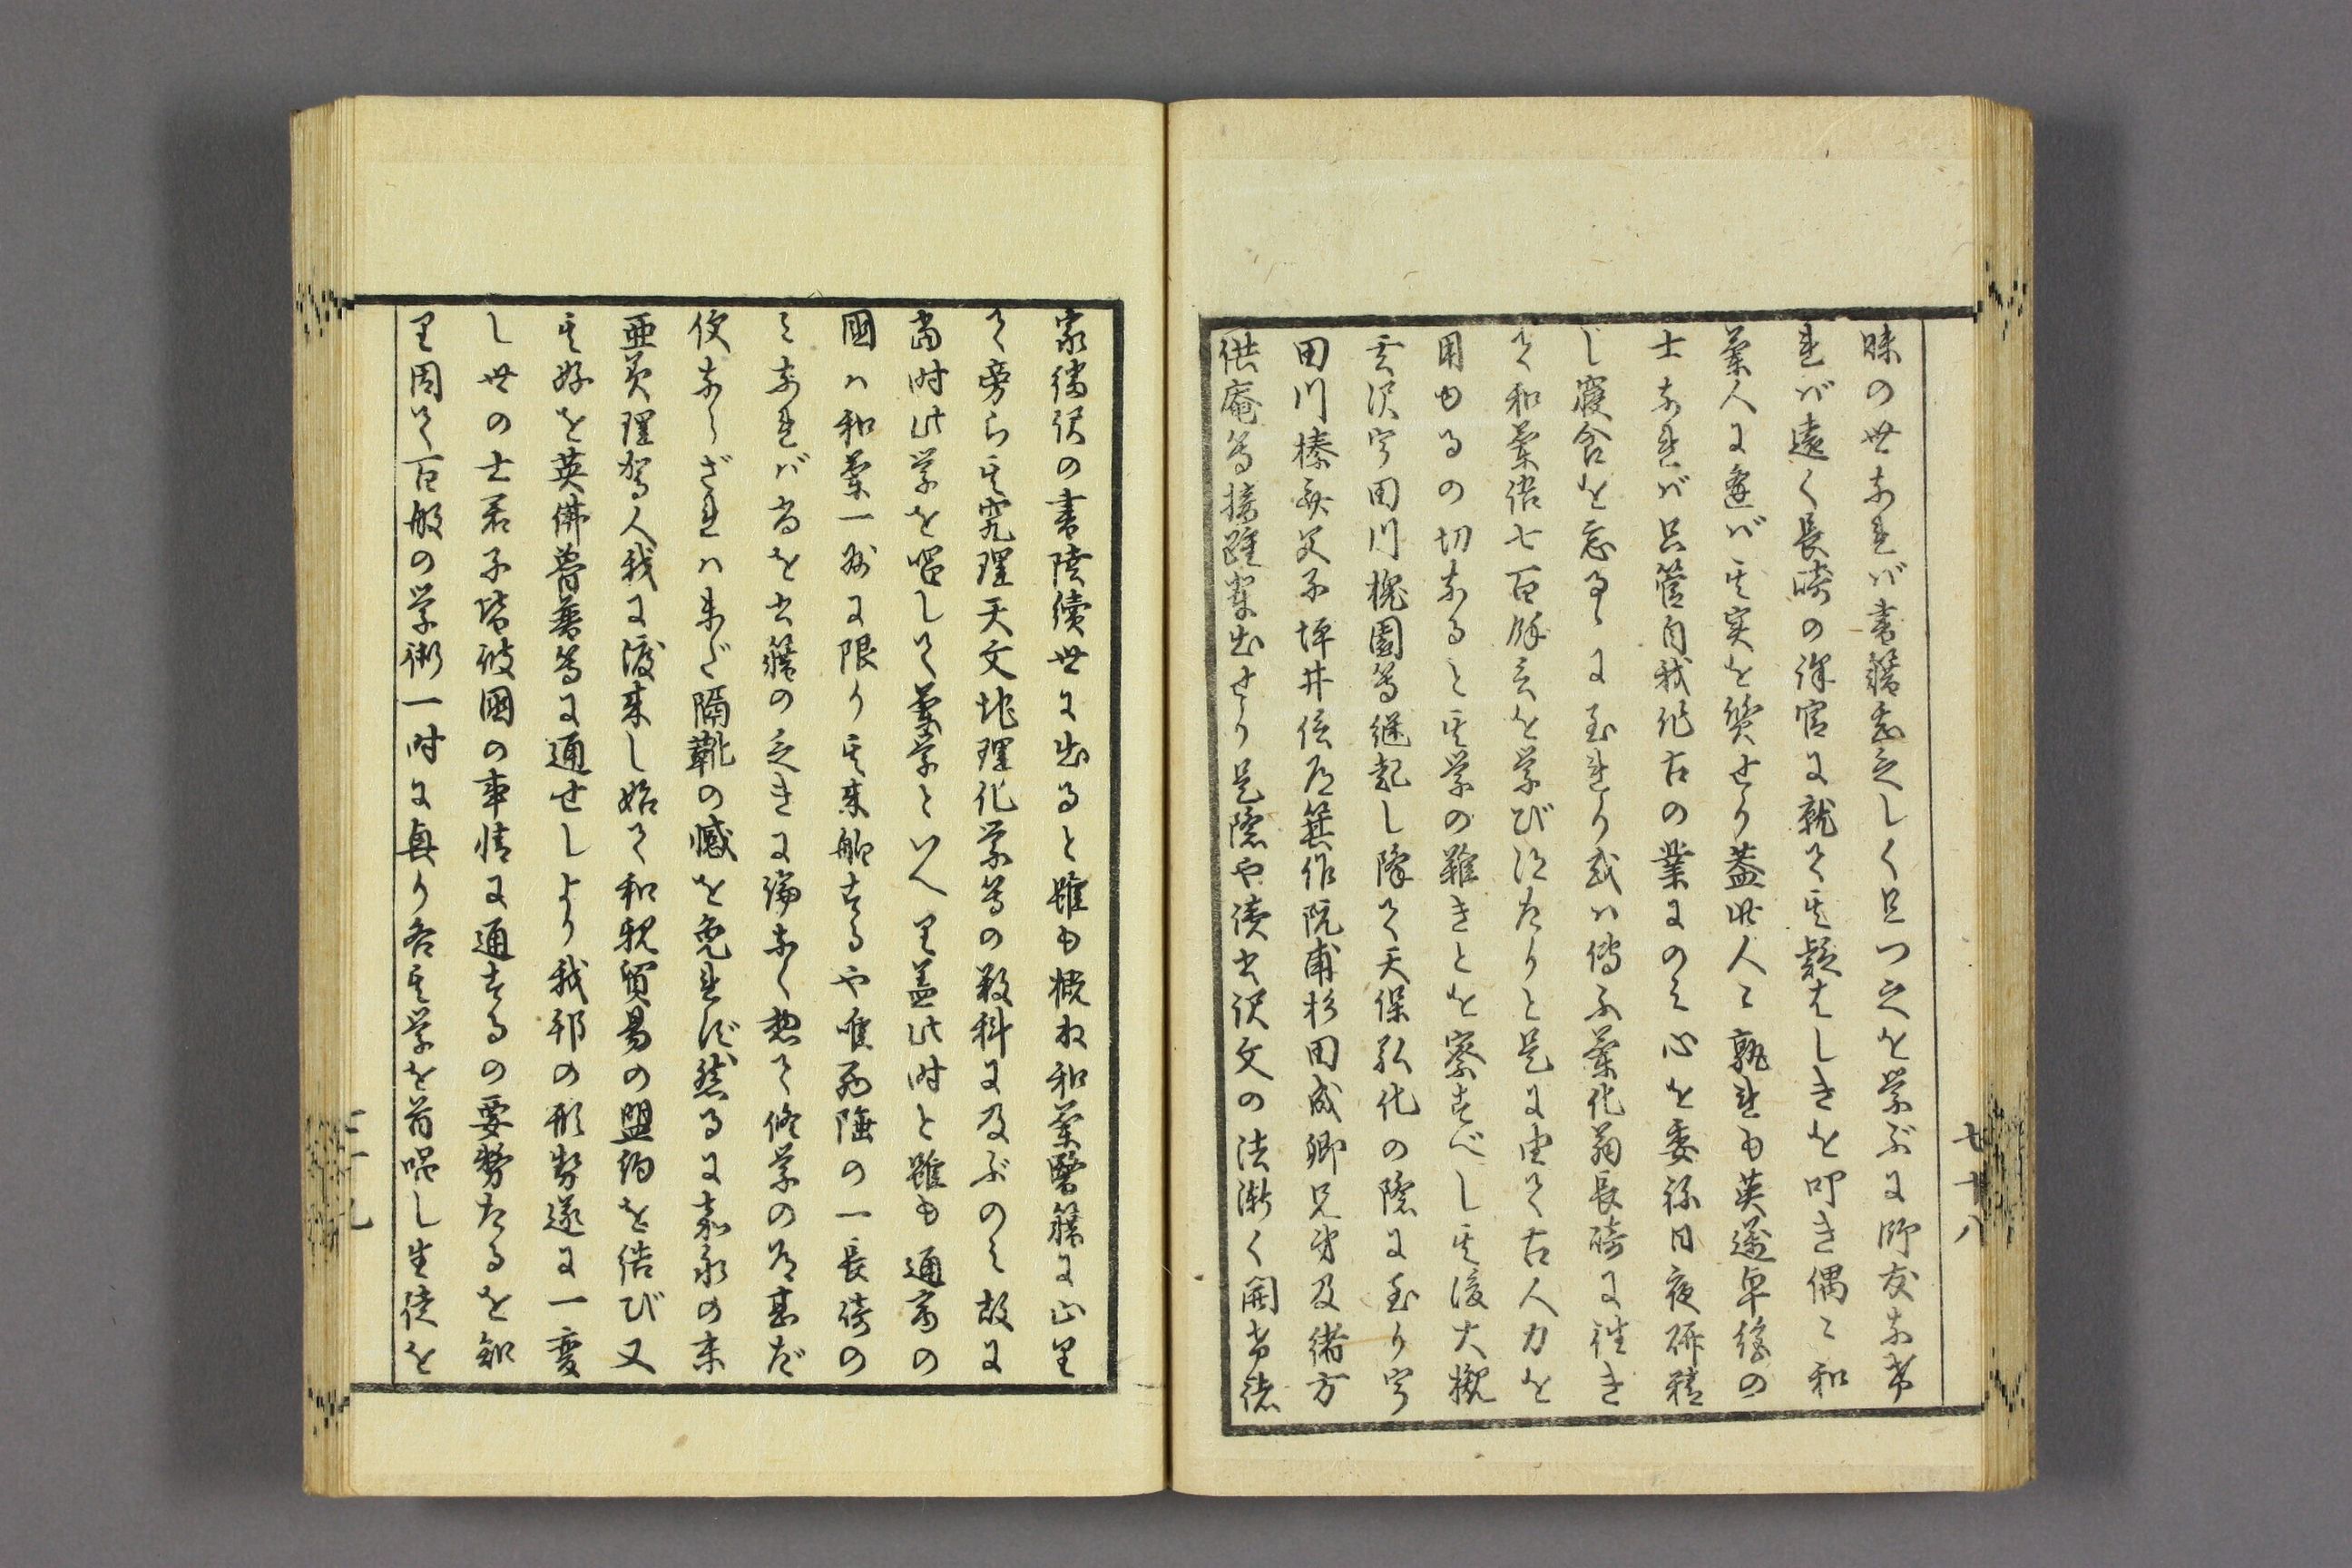 昧の世なれば書籍甚乏しく且つ之を学ぶに師友なけ
れば遠く長崎の譯官に就て其疑はしきを叩き偶々和
蘭人に逢ば其実を質せり蓋此人々孰れも英邁卓絶の
士なれば只管自我作古の業にのみ心を委ね日夜研精
し寝食を忘るゝに至れり或は傳ふ蘭化翁長崎に往き
て和蘭語七百餘言を学び得たりと是に由て古人力を
用ゆるの切なると其学の難きとを察すべし其後大槻
玄沢宇田川槐園等継起し降て天保弘化の際に至り宇
田川榛斎父子坪井信道箕作阮甫杉田成卿兄弟及緒方
洪庵等接踵輩出せり是際や読書訳文の法漸く開け諸
七十八
家繙訳の書陸続世に出ると雖も概ね和蘭醫籍に止り
て旁ら其究理天文地理化学等の数科に及ぶのみ故に
当時此学を唱して蘭学といへり蓋此時と雖も通商の
國は和蘭一州に限り其来舶するや唯西陲の一長崎の
みなれば尚を書籍の乏きに論なく惣て修学の道甚だ
便ならざれは未だ隔靴の憾を免れず然るに嘉永の末
亜美理駕人我に渡来し始て和親貿易の盟約を結び又
其好を英佛魯普等に通せしより我邦の形勢遂に一変
し世の士君子皆彼國の事情に通するの要務たるを知
り因て百般の学術一時に興り各其学を首唱し生徒を